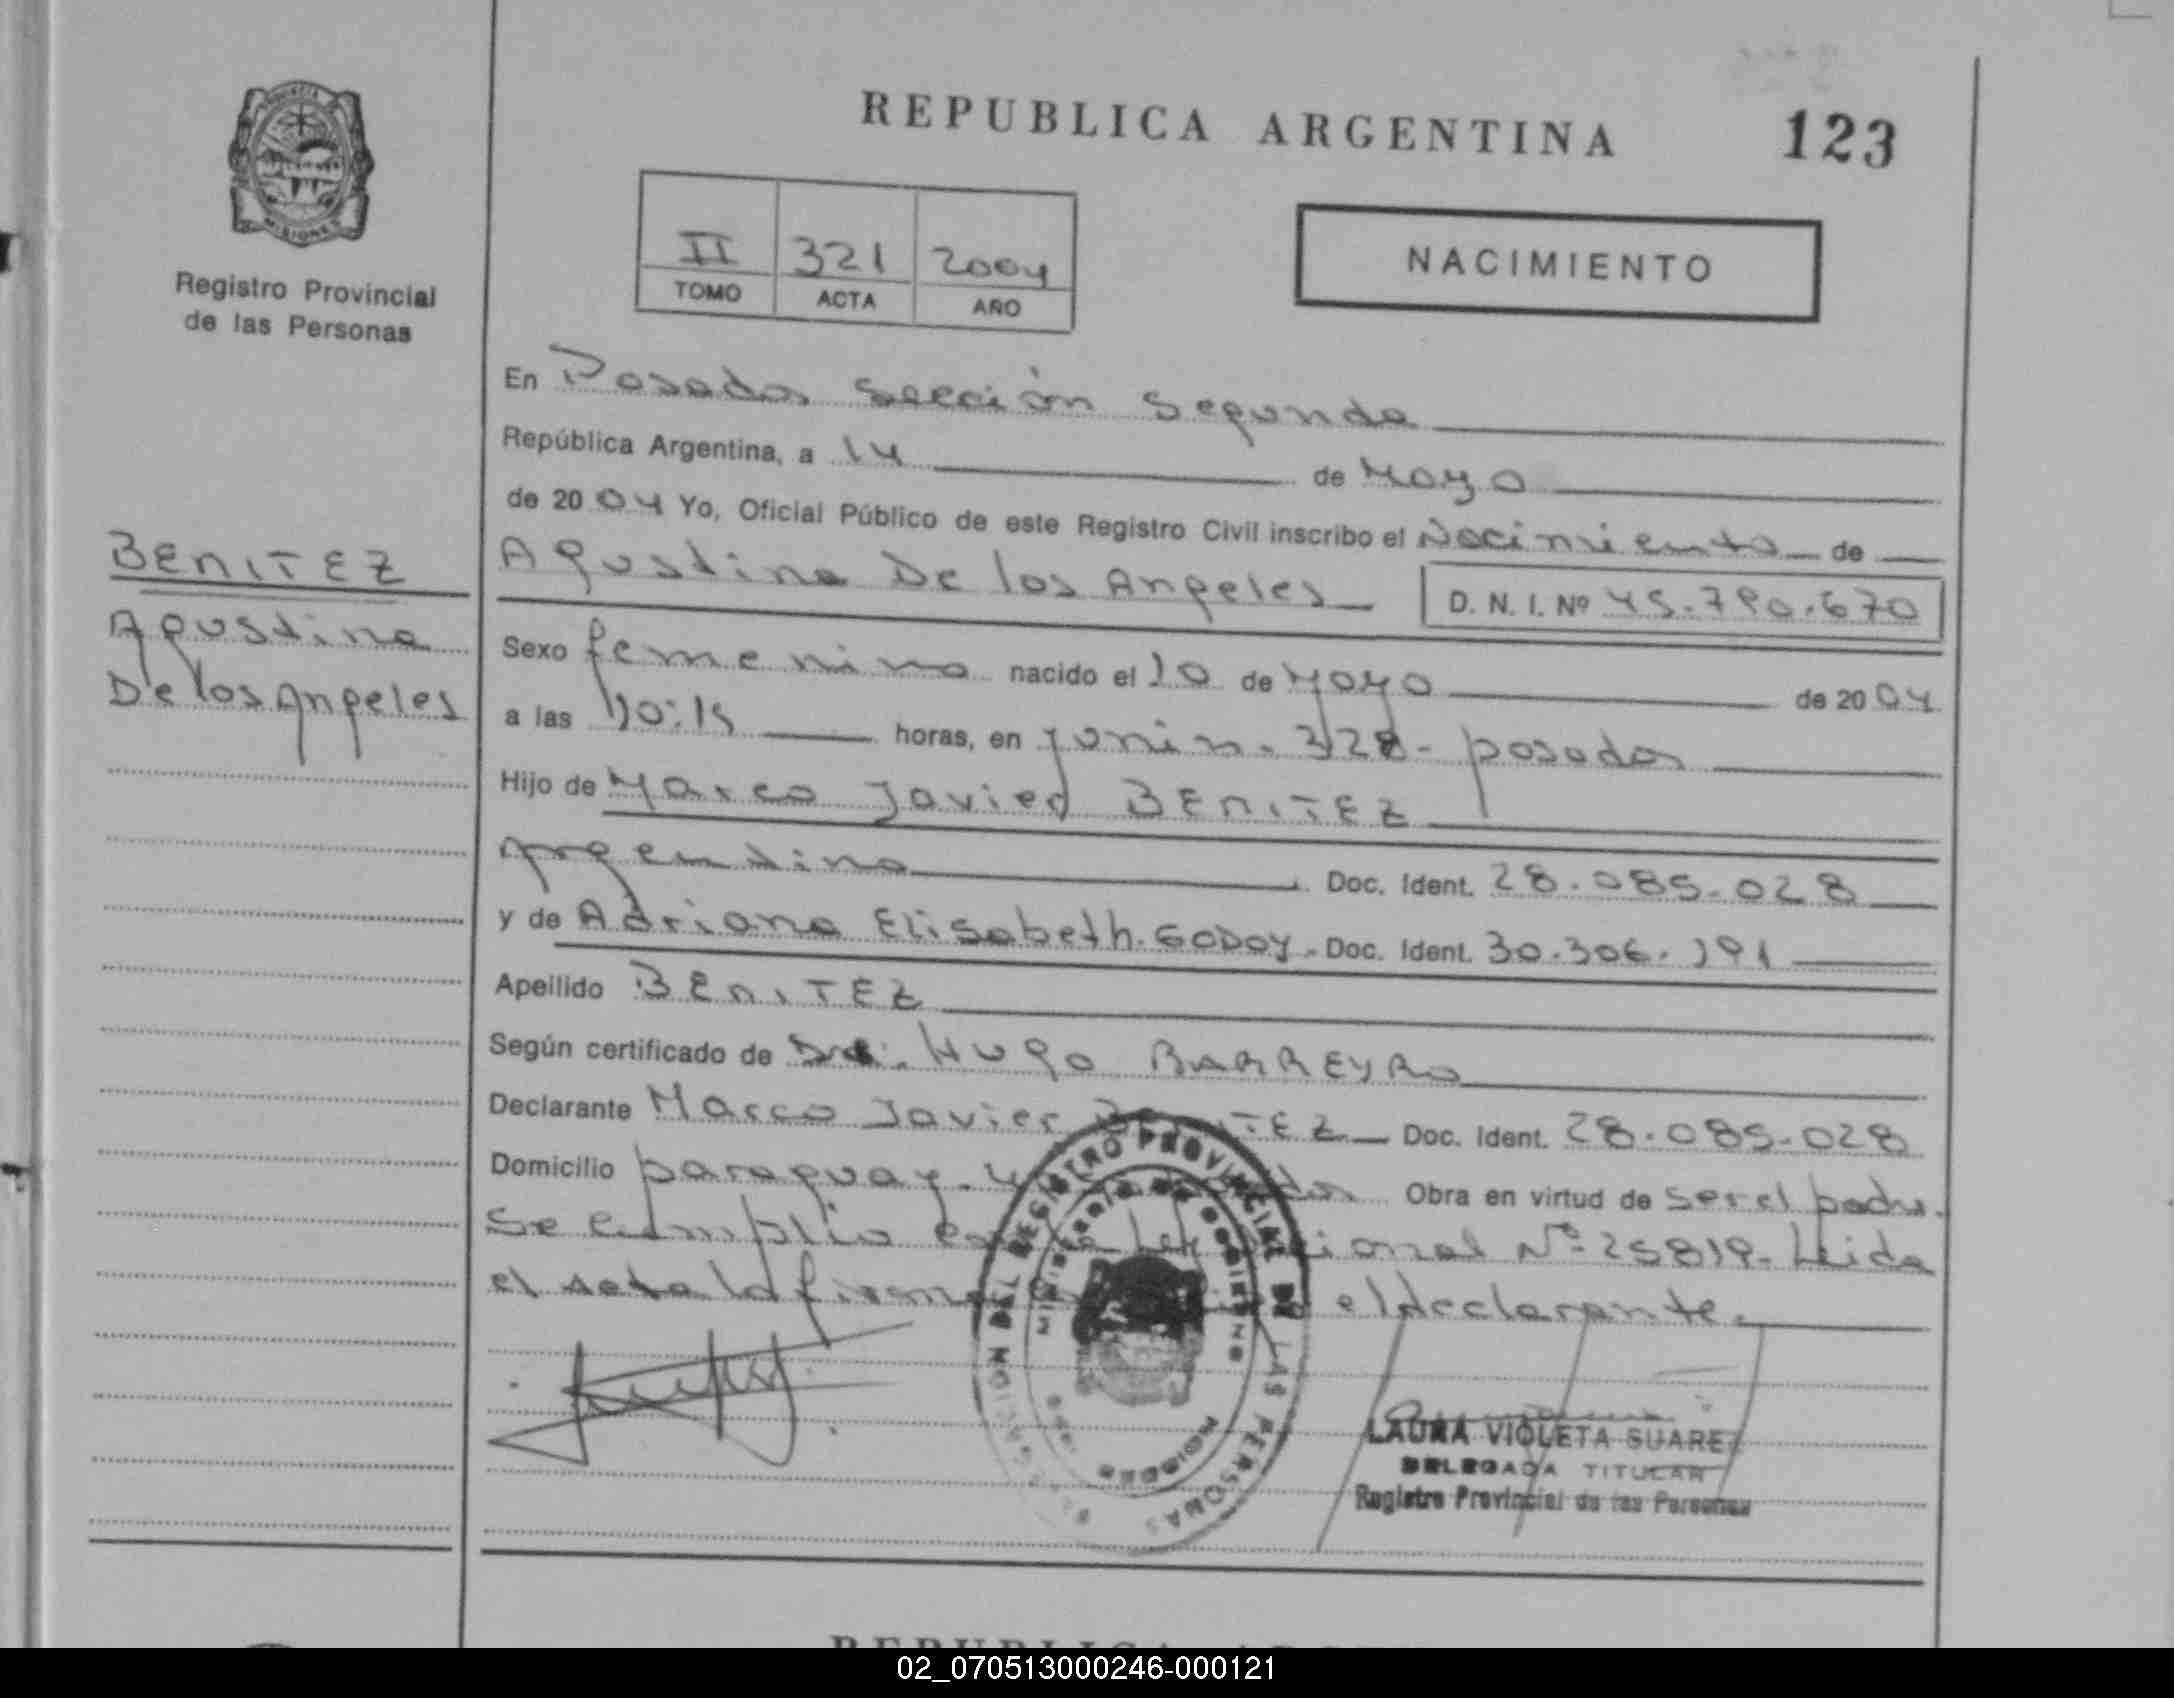 REPUBLICA ARGENTINA 123
PROVINCIA
MISIONES
Registro Provincial
de las Personas
II 321 2004
TOMO ACTA AÑO
NACIMIENTO
En Posadas Sección Segunda
República Argentina, a 14 de Mayo
de 2004 Yo, Oficial Público de este Registro Civil inscribo el Nacimiento de
BENITEZ
Agustina
De los Angeles
Agustina De los Angeles D. N. I. Nº 45.790.670
Sexo femenino nacido el 10 de Mayo de 2004
a las 10:15 horas, en Junin. 328- posadas
Hijo de Marco Javier BENITEZ
Argentino Doc. Ident. 28.085.028
y de Adriana Elisabeth. GODOY. Doc. Ident. 30.306.191
Apellido BENITEZ
Según certificado de Dr. Hugo BARREYRO
Declarante Marco Javier BENITEZ Doc. Ident. 28.085.028
Domicilio paraguay. Obra en virtud de ser el padre.
Se cumplio Nº 25819- Leida
el acta la firma el declarante.
REGISTRO PROVINCIAL DE LAS PERSONAS
MINISTERIO DE GOBIERNO
MISIONES
LAURA VIOLETA SUAREZ
DELEGADA TITULAR
Registro Provincial de las Personas
02_070513000246-000121